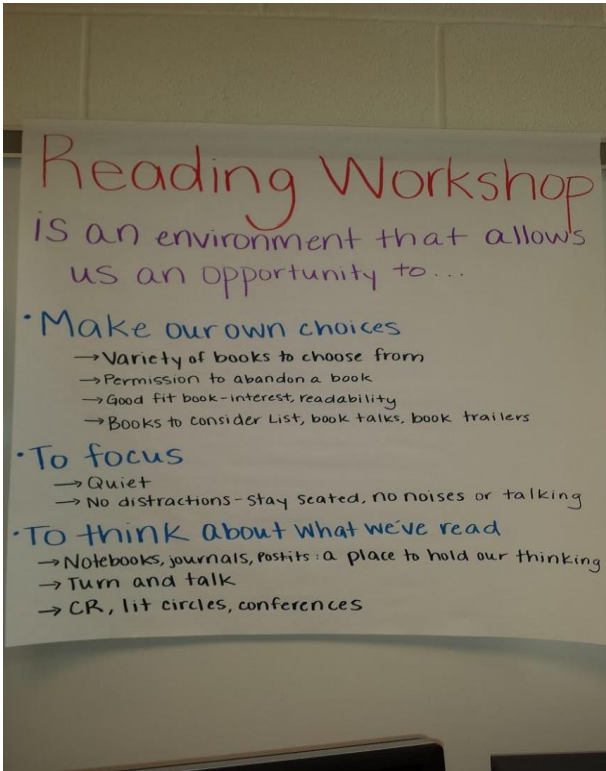 Reading Workshop
is an environment that allows
us an opportunity to...
· Make our own choices
→ Variety of books to choose from
→ Permission to abandon a book
→ Good fit book - interest, readability
→ Books to consider List, book talks, book trailers
· To focus
→ Quiet
→ No distractions - stay seated, no noises or talking
· To think about what we've read
→ Notebooks, journals, Postits: a place to hold our thinking
→ Turn and talk
→ CR, lit circles, conferences